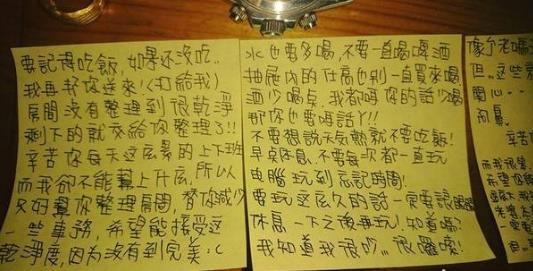 要記得吃飯,如果還沒吃..
我再幫你送來!(打給我)
房間沒有整理到很乾淨
剩下的就交給你整理了!!
辛苦你每天這麼累的上下班
而我卻不能幫上什麼,所以
只好幫你整理房間,替你減少
一些事務,希望能接受這
乾淨度,因為沒有到完美:(
水也要多喝,不要一直喝啤酒
抽屜內的也別一直買來喝
酒少喝点,我都聽你的話少喝
那你也要聽話ㄚ!!
不要想說天氣熱就不要吃飯!
早点休息,不要每次都一直玩
電腦玩到忘記時間!
要玩這麼久的話一定要讓眼睛
休息一下之後再玩!知道嗎?
我知道我很吵...很囉嗦!
像台老
但..這些
開心..
辛苦
而我很
希望你